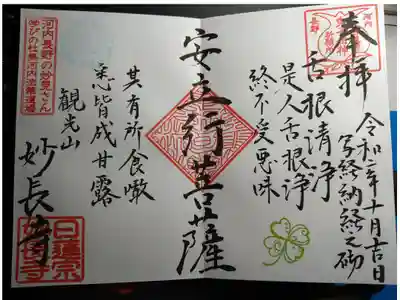 奉拝
令和二年十月吉日
写経納経之砌
舌根清浄
是人舌根浄
終不受悪味
安立行菩薩
其有所食噉
悉皆成甘露
観光山
妙長寺
河内長野の妙見さん
日蓮宗
妙長寺